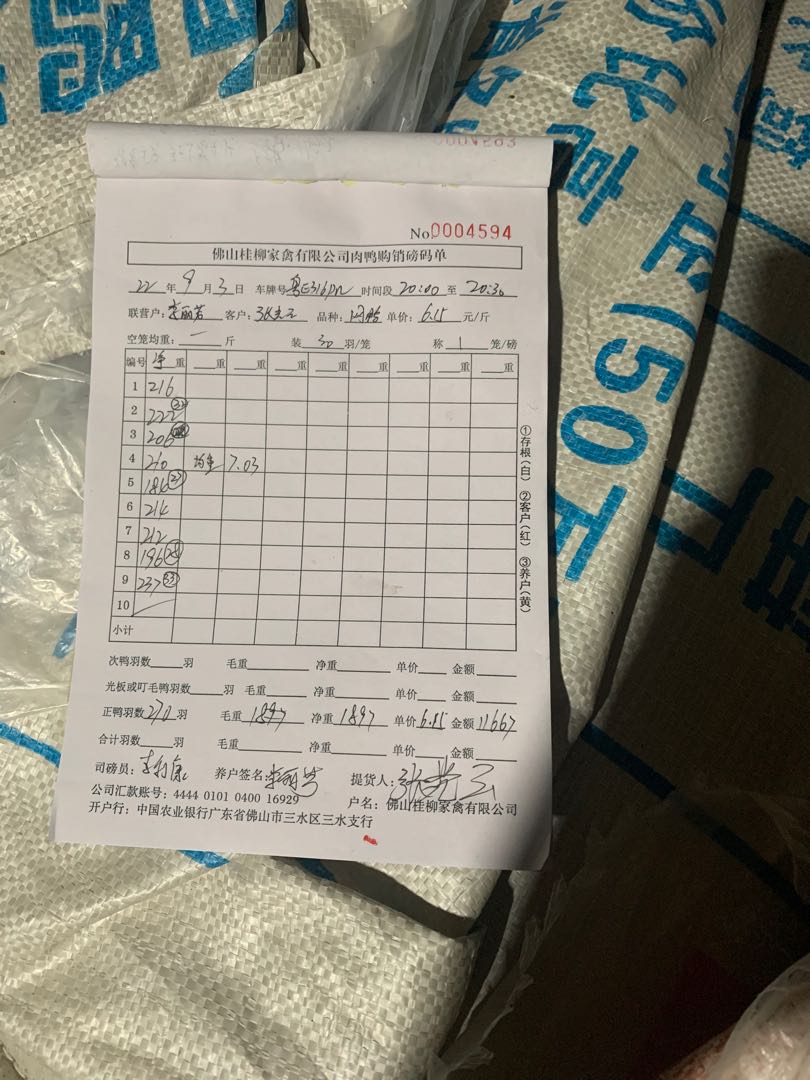 No 0004594
佛山桂柳家禽有限公司肉鸭购销磅码单
22 年 9 月 3 日 车牌号 粤E316DN 时间段 20:00 至 20:30
联营户: 李丽芳 客户: 品种: 单价: 6.15 元/斤
空笼均重: 一 斤 装 30 羽/笼 称 1 笼/磅
编号 净重 重 重 重 重 重 重 重 重
1 216
2 222 32
3 206
4 210 均重 7.03
5 184 27
6 214
7 212
8 196 28
9 237 33
10
小计
①存根(白) ②客户(红) ③养户(黄)
次鸭羽数 羽 毛重 净重 单价 金额
光板或叮毛鸭羽数 羽 毛重 净重 单价 金额
正鸭羽数 270 羽 毛重 1897 净重 1897 单价 6.15 金额 11667
合计羽数 羽 毛重 净重 单价 金额
司磅员: 养户签名: 李丽芳 提货人:
公司汇款账号: 4444 0101 0400 16929 户名: 佛山桂柳家禽有限公司
开户行: 中国农业银行广东省佛山市三水区三水支行
(50